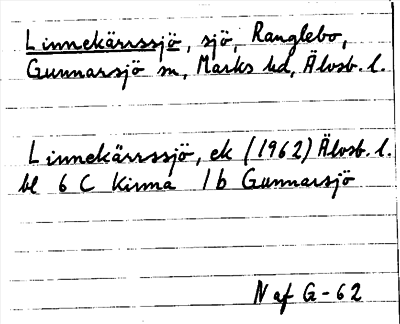 Linnekärrssjö, sjö, Ranglebo,
Gunnarsjö sn, Marks hd, Älvsb. l.
Linnekärrssjö, ek (1962) Älvsb. l.
bl 6 C Kinna 1b Gunnarsjö
N af G-62